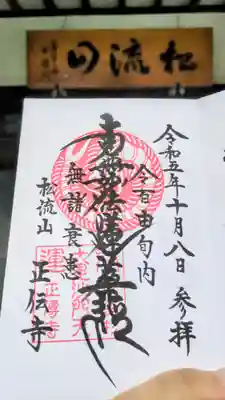 松流山
令和五年十月八日 参拝
令百由旬内
南無妙法蓮華経
無諸衰患
松流山
正伝寺